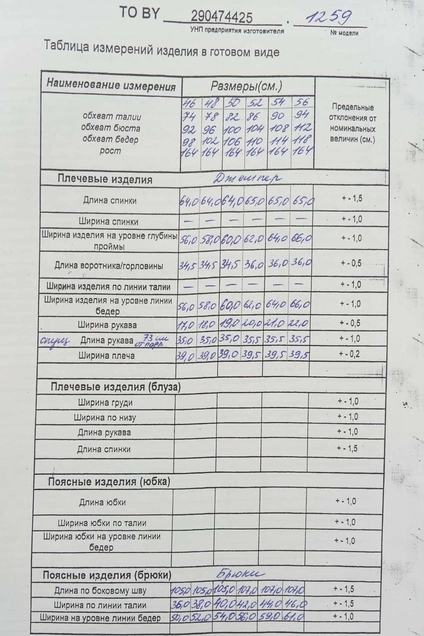 TO BY 290474425 . 1259
УНП предприятия изготовителя № модели
Таблица измерений изделия в готовом виде
Наименование измерения Размеры(см.) Предельные отклонения от номинальных величин (см.)
46 48 50 52 54 56
обхват талии 74 78 82 86 90 94
обхват бюста 92 96 100 104 108 112
обхват бедер 98 102 106 110 114 118
рост 164 164 164 164 164 164
Плечевые изделия Джемпер
Длина спинки 64,0 64,0 64,0 65,0 65,0 65,0 + - 1,5
Ширина спинки — — — — — — + - 1,0
Ширина изделия на уровне глубины проймы 56,0 58,0 60,0 62,0 64,0 66,0 + - 1,0
Длина воротника/горловины 34,5 34,5 34,5 36,0 36,0 36,0 + - 0,5
Ширина изделия по линии талии — — — — — — + - 1,0
Ширина изделия на уровне линии бедер 56,0 58,0 60,0 62,0 64,0 66,0 + - 1,0
Ширина рукава 17,0 18,0 19,0 20,0 21,0 22,0 + - 0,5
Длина рукава 73 см 35,0 35,0 35,0 35,5 35,5 35,5 + - 1,0
Ширина плеча 39,0 39,0 39,0 39,5 39,5 39,5 + - 0,2
Плечевые изделия (блуза)
Ширина груди + - 1,0
Ширина по низу + - 1,0
Длина рукава + - 1,0
Длина спинки + - 1,5
Поясные изделия (юбка)
Длина юбки + - 1,0
Ширина юбки по талии + - 1,0
Ширина юбки на уровне линии бедер + - 1,0
Поясные изделия (брюки) Брюки
Длина по боковому шву 105,0 105,0 105,0 107,0 107,0 107,0 + - 1,5
Ширина по линии талии 36,0 38,0 40,0 42,0 44,0 46,0 + - 1,5
Ширина на уровне линии бедер 50,0 52,0 54,0 56,0 59,0 61,0 + - 1,0